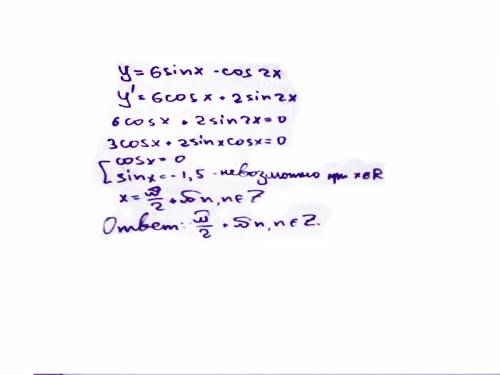 y = 6sinx - cos2x
y' = 6cosx + 2sin2x
6cosx + 2sin2x = 0
3cosx + 2sinxcosx = 0
[ cosx = 0
sinx = -1,5 - невозможно при x∈R
x = π/2 + πn, n∈Z
Ответ: π/2 + πn, n∈Z.